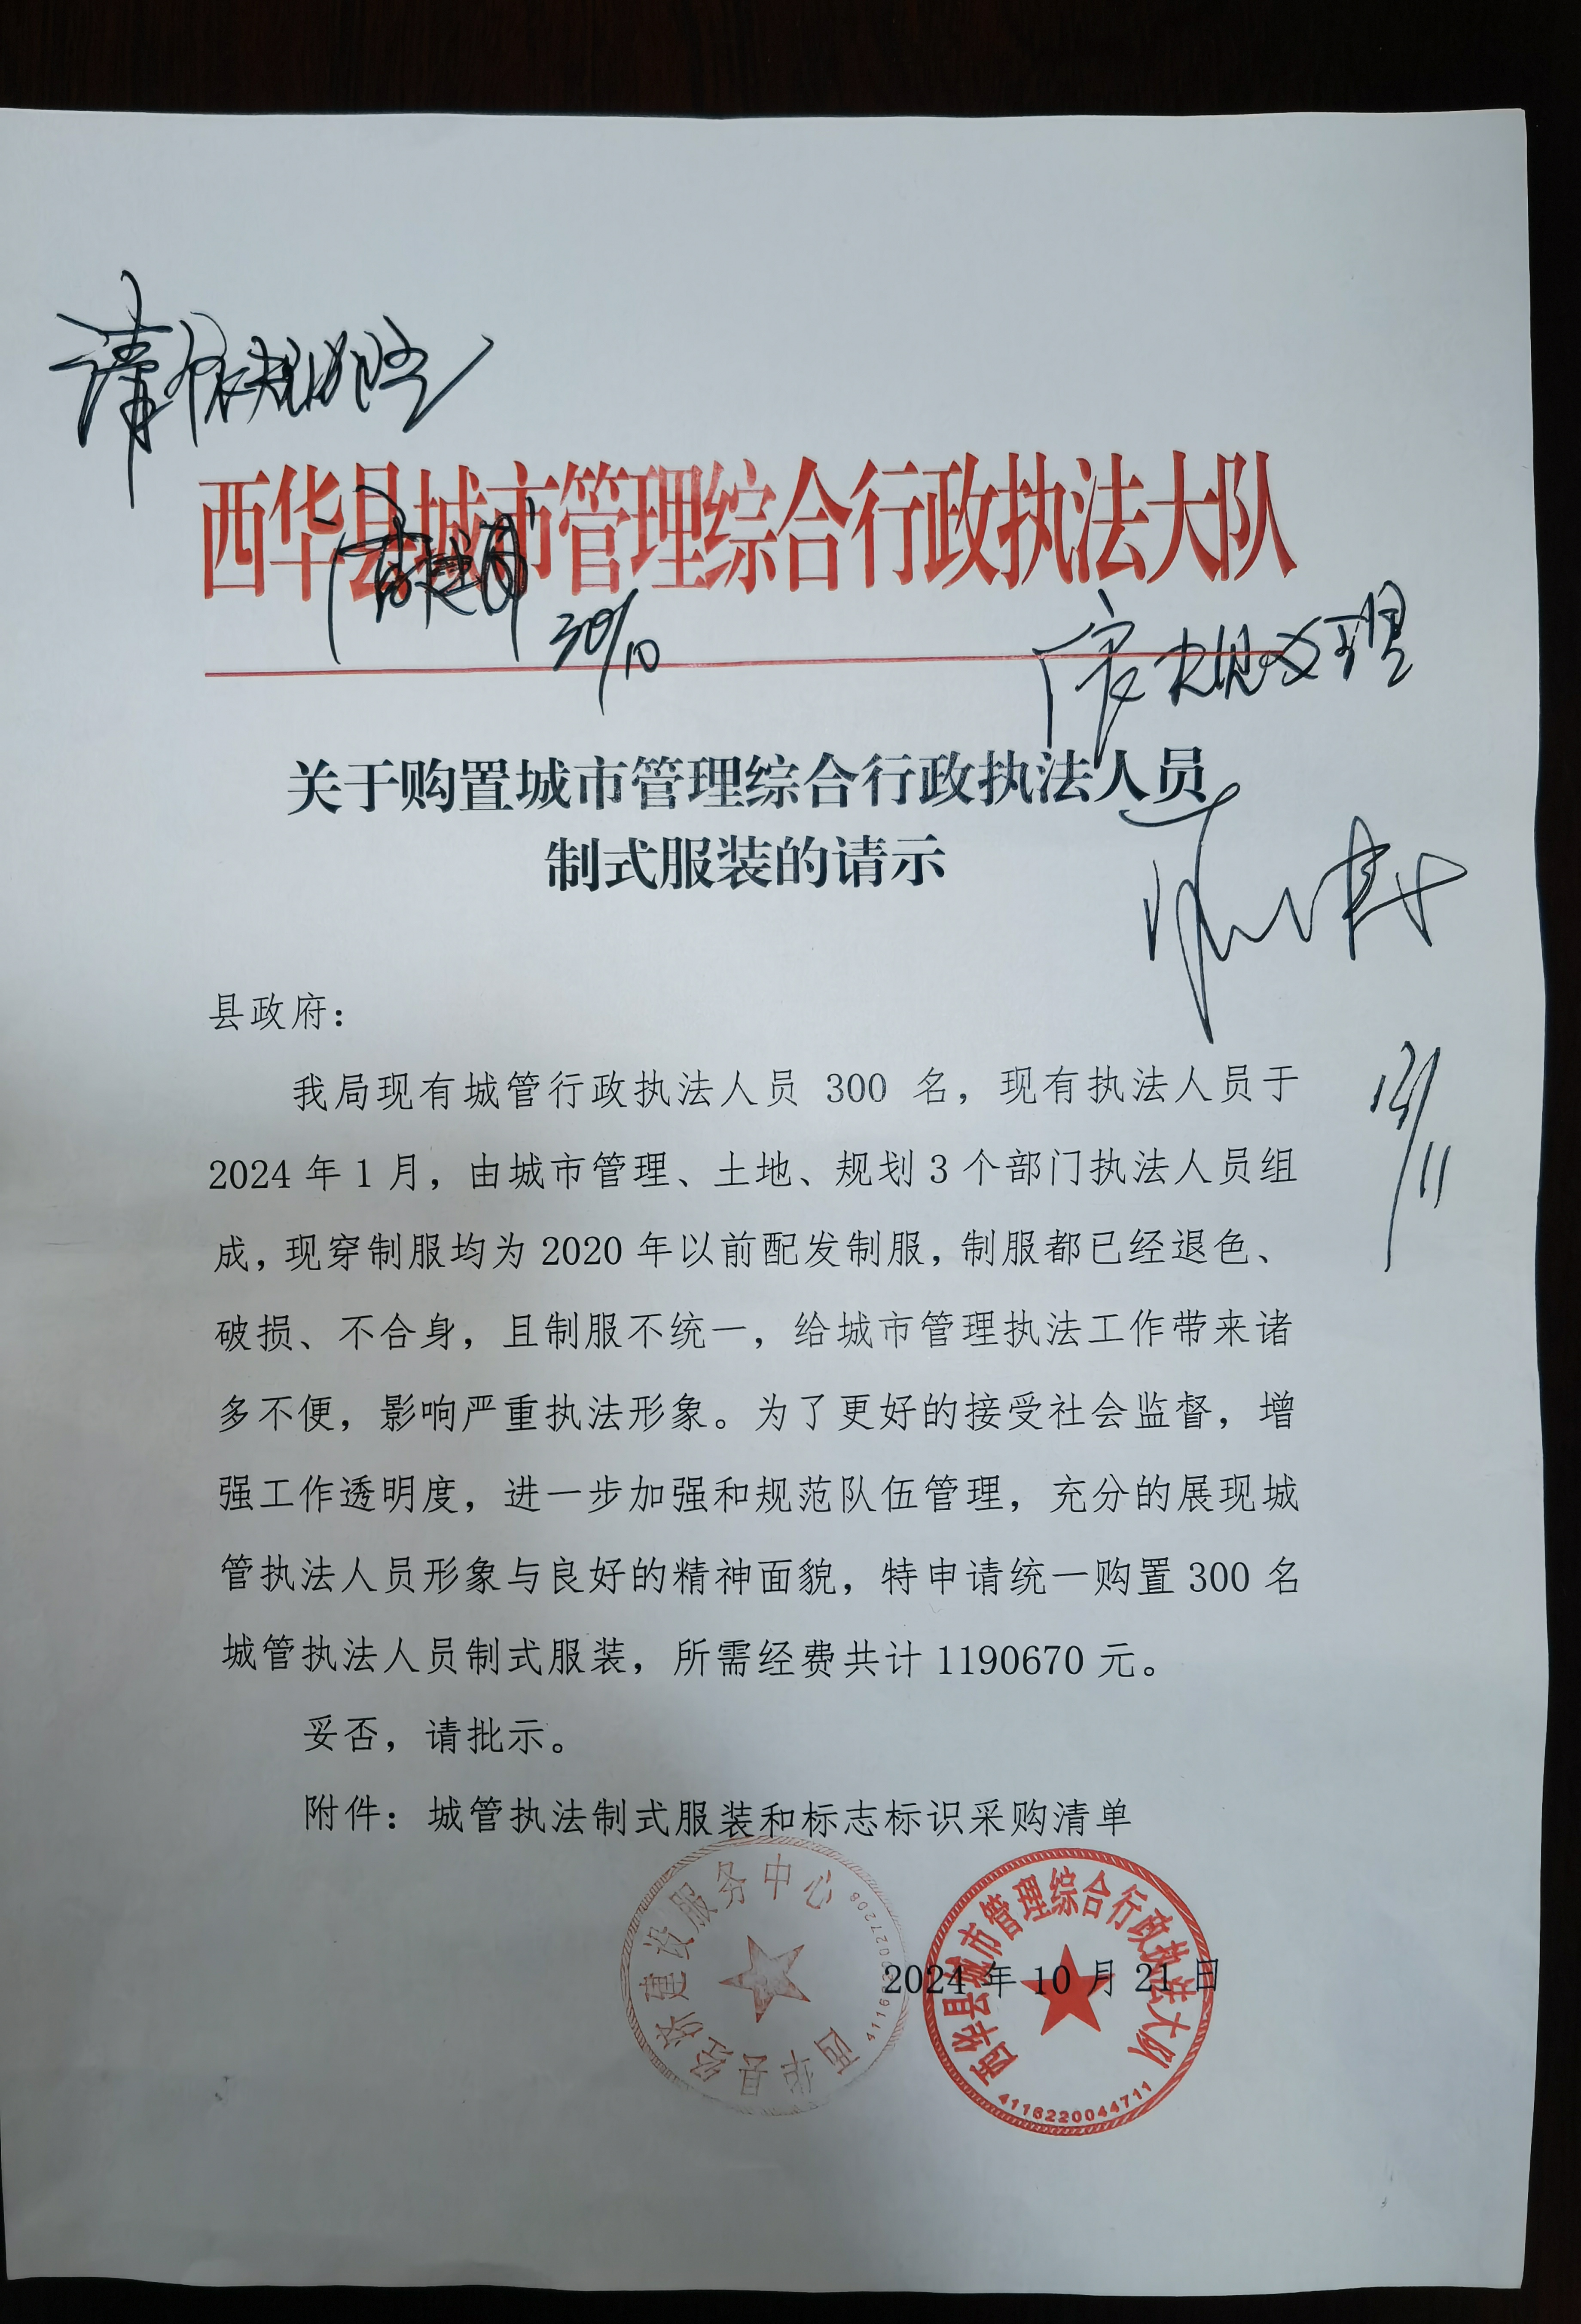 请
西华县城市管理综合行政执法大队
30/10
关于购置城市管理综合行政执法人员
制式服装的请示
县政府：
我局现有城管行政执法人员 300 名，现有执法人员于
2024 年 1 月，由城市管理、土地、规划 3 个部门执法人员组
成，现穿制服均为 2020 年以前配发制服，制服都已经退色、
破损、不合身，且制服不统一，给城市管理执法工作带来诸
多不便，影响严重执法形象。为了更好的接受社会监督，增
强工作透明度，进一步加强和规范队伍管理，充分的展现城
管执法人员形象与良好的精神面貌，特申请统一购置 300 名
城管执法人员制式服装，所需经费共计 1190670 元。
妥否，请批示。
附件：城管执法制式服装和标志标识采购清单
西华县经济建设服务中心
2024 年 10 月 21 日
西华县城市管理综合行政执法大队
4116220044711